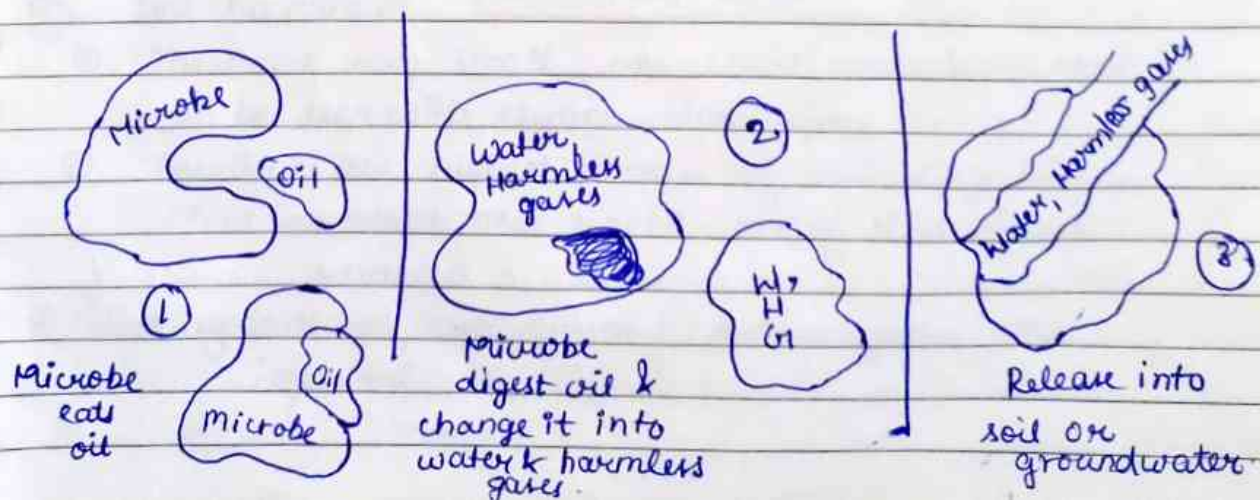 Microbe
Oil
1
Microbe
eats
oil
Oil
Microbe
Water,
Harmless
gases
2
W,
H
G
Microbe
digest oil &
change it into
water & harmless
gases.
Water, Harmless gases
3
Release into
soil or
groundwater